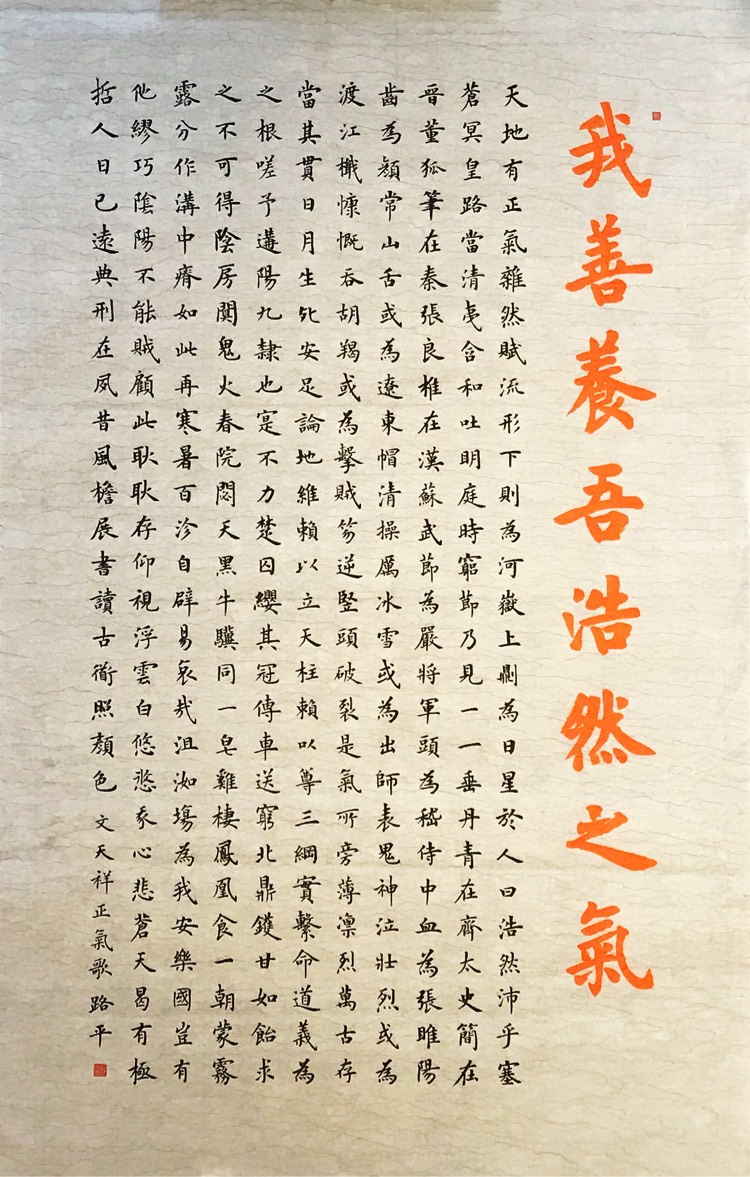 我善養吾浩然之氣
天地有正氣雜然賦流形下則為河嶽上則為日星於人曰浩然沛乎塞
蒼冥皇路當清夷含和吐明庭時窮節乃見一一垂丹青在齊太史簡在
晉董狐筆在秦張良椎在漢蘇武節為嚴將軍頭為嵇侍中血為張睢陽
齒為顏常山舌或為遼東帽清操厲冰雪或為出師表鬼神泣壯烈或為
渡江檝慷慨吞胡羯或為擊賊笏逆豎頭破裂是氣所旁薄凜烈萬古存
當其貫日月生死安足論地維賴以立天柱賴以尊三綱實繫命道義為
之根嗟予遘陽九隸也寔不力楚囚纓其冠傳車送窮北鼎鑊甘如飴求
之不可得陰房闃鬼火春院閟天黑牛驥同一皂雞棲鳳凰食一朝蒙霧
露分作溝中瘠如此再寒暑百沴自辟易哀哉沮洳場為我安樂國豈有
他繆巧陰陽不能賊顧此耿耿存仰視浮雲白悠悠我心悲蒼天曷有極
哲人日已遠典刑在夙昔風檐展書讀古衜照顏色 文天祥正氣歌路平